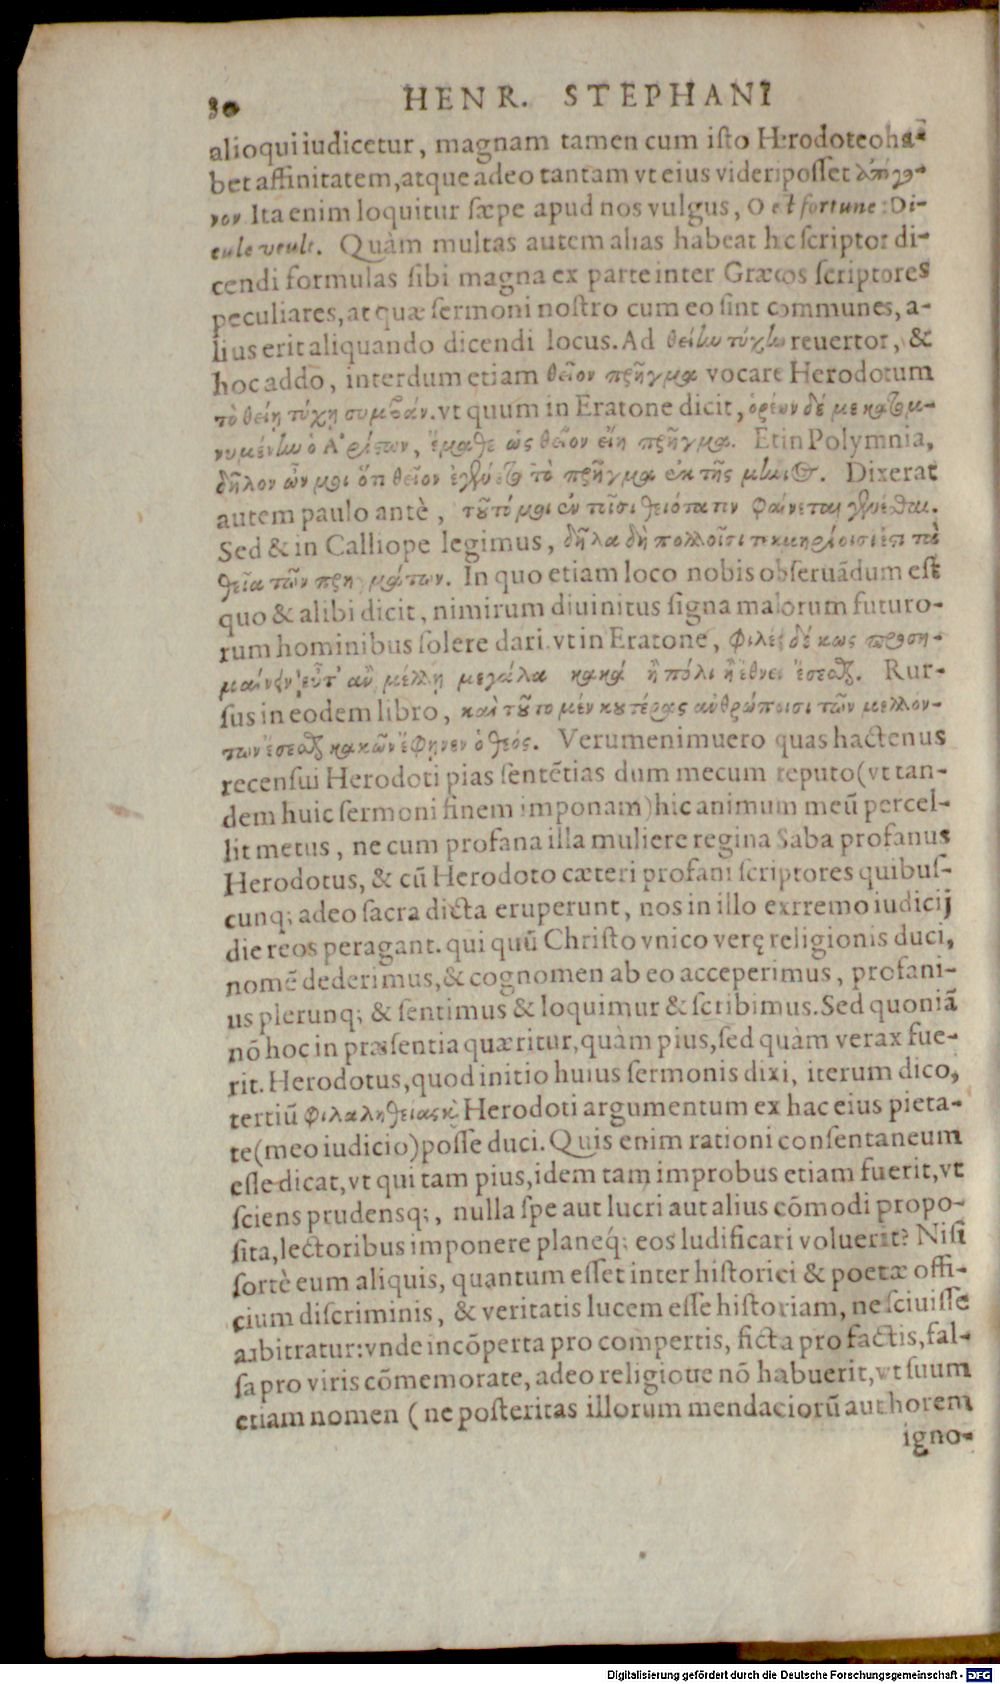 30 HENR. STEPHANI
alioqui iudicetur, magnam tamen cum isto Herodoteo ha-
bet affinitatem, atque adeo tantam vt eius videri posset ἀπόγο-
νον Ita enim loquitur sæpe apud nos vulgus, O et fortune: Di-
eu le veult. Quàm multas autem alias habeat hic scriptor di-
cendi formulas sibi magna ex parte inter Græcos scriptores
peculiares, at quæ sermoni nostro cum eo sint communes, a-
lius erit aliquando dicendi locus. Ad θείlω τύχlω reuertor, &
hoc addo, interdum etiam θεῖον πρῆγμα vocare Herodotum
τὸ θείῃ τύχῃ συμβάν. vt quum in Eratone dicit, ὁρέων δέ με κατομ-
νυμένlω ὁ Ἀρίστων, ἔμαθε ὡς θεῖον εἴη πρῆγμα. Et in Polymnia,
δῆλον ὦν μοι ὅτι θεῖον ἐγένετο τὸ πρῆγμα ἐκ τῆς μlώιος. Dixerat
autem paulo antè, τοῦτό μοι ἐν τοῖσι θειότατον φαίνεται γενέσθαι.
Sed & in Calliope legimus, δῆλα δὴ πολλοῖσι τεκμηρίοισί ἐστι τὰ
θεῖα τῶν πρηγμάτων. In quo etiam loco nobis obseruādum est
quo & alibi dicit, nimirum diuinitus signa malorum futuro-
rum hominibus solere dari. vt in Eratone, φιλέει δέ κως προση-
μαίνειν, εὖτ' ἂν μέλλῃ μεγάλα κακά ἢ πόλι ἢ ἔθνει ἔσεσθαι. Rur-
sus in eodem libro, καὶ τοῦτο μέν κου τέρας ἀνθρώποισι τῶν μελλόν-
των ἔσεσθαι κακῶν ἔφηνεν ὁ θεός. Verumenimuero quas hactenus
recensui Herodoti pias sentētias dum mecum reputo (vt tan-
dem huic sermoni finem imponam) hic animum meū percel-
lit metus, ne cum profana illa muliere regina Saba profanus
Herodotus, & cū Herodoto cæteri profani scriptores quibus-
cunq; adeo sacra dicta eruperunt, nos in illo exrremo iudicij
die reos peragant. qui quū Christo vnico verę religionis duci,
nomē dederimus, & cognomen ab eo acceperimus, profani-
us plerunq; & sentimus & loquimur & scribimus. Sed quoniā
nō hoc in præsentia quæritur, quàm pius, sed quàm verax fue-
rit. Herodotus, quod initio huius sermonis dixi, iterum dico,
tertiū φιλαληθείας Herodoti argumentum ex hac eius pieta-
te (meo iudicio) posse duci. Quis enim rationi consentaneum
esse dicat, vt qui tam pius, idem tam improbus etiam fuerit, vt
sciens prudensq;, nulla spe aut lucri aut alius cōmodi propo-
sita, lectoribus imponere planeq́; eos ludificari voluerit? Nisi
fortè eum aliquis, quantum esset inter historici & poetæ offi-
cium discriminis, & veritatis lucem esse historiam, nesciuisse
arbitratur: vnde incōperta pro compertis, ficta pro factis, fal-
sa pro viris cōmemorate, adeo religioue nō habuerit, vt suum
etiam nomen (ne posteritas illorum mendaciorū authorem
igno-
Digitalisierung gefördert durch die Deutsche Forschungsgemeinschaft - DFG